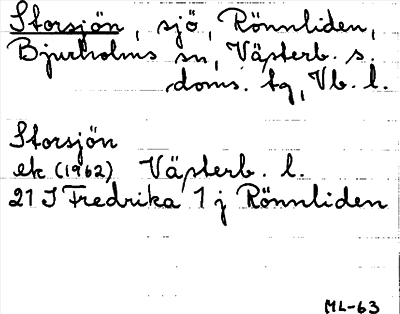 Storsjön, sjö, Rönnliden,
Bjurholms sn, Västerb. s.
doms. tg, Vb. l.
Storsjön
ek (1962) Västerb. l.
21 J Fredrika 1 j Rönnliden
ML-63